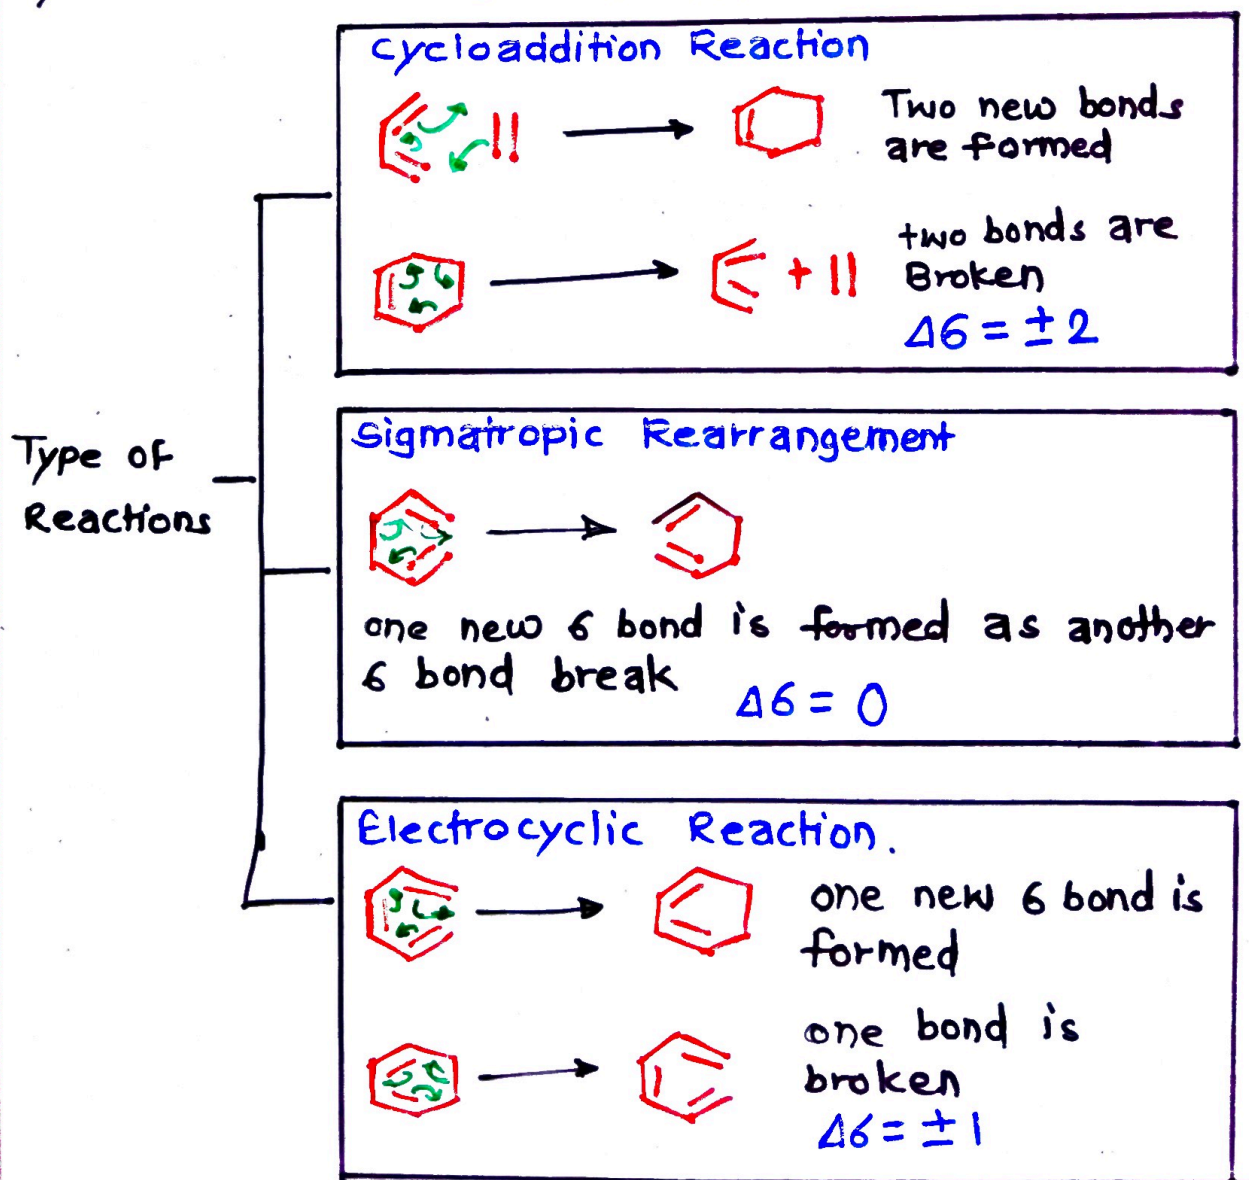 Type of
Reactions
cycloaddition Reaction
Two new bonds
are formed
two bonds are
Broken
Δ6 = ±2
Sigmatropic Rearrangement
one new 6 bond is formed as another
6 bond break
Δ6 = 0
Electrocyclic Reaction.
one new 6 bond is
formed
one bond is
broken
Δ6 = ±1